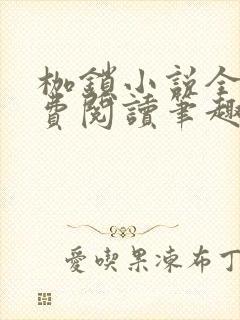 枷鎖小説全
費閱讀筆趣
愛喫果凍布丁